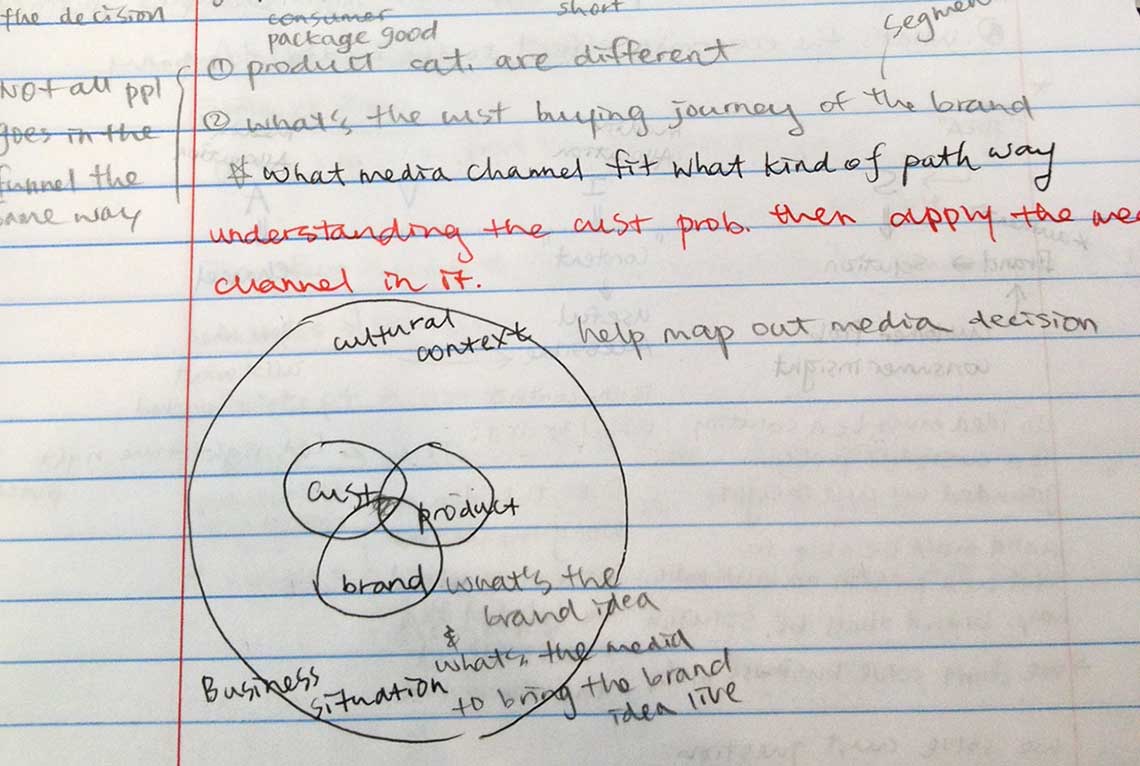 the decision
consumer
package good
short
① product cat. are different
Not all ppl
goes in the
funnel the
same way
② what's the cust buying journey of the brand
& what media channel fit what kind of path way
understanding the cust prob. then apply the
channel in it.
cultural
context
help map out media decision
cust
product
brand
what's the
brand idea
&
what's the media
to bring the brand
idea live
Business
situation